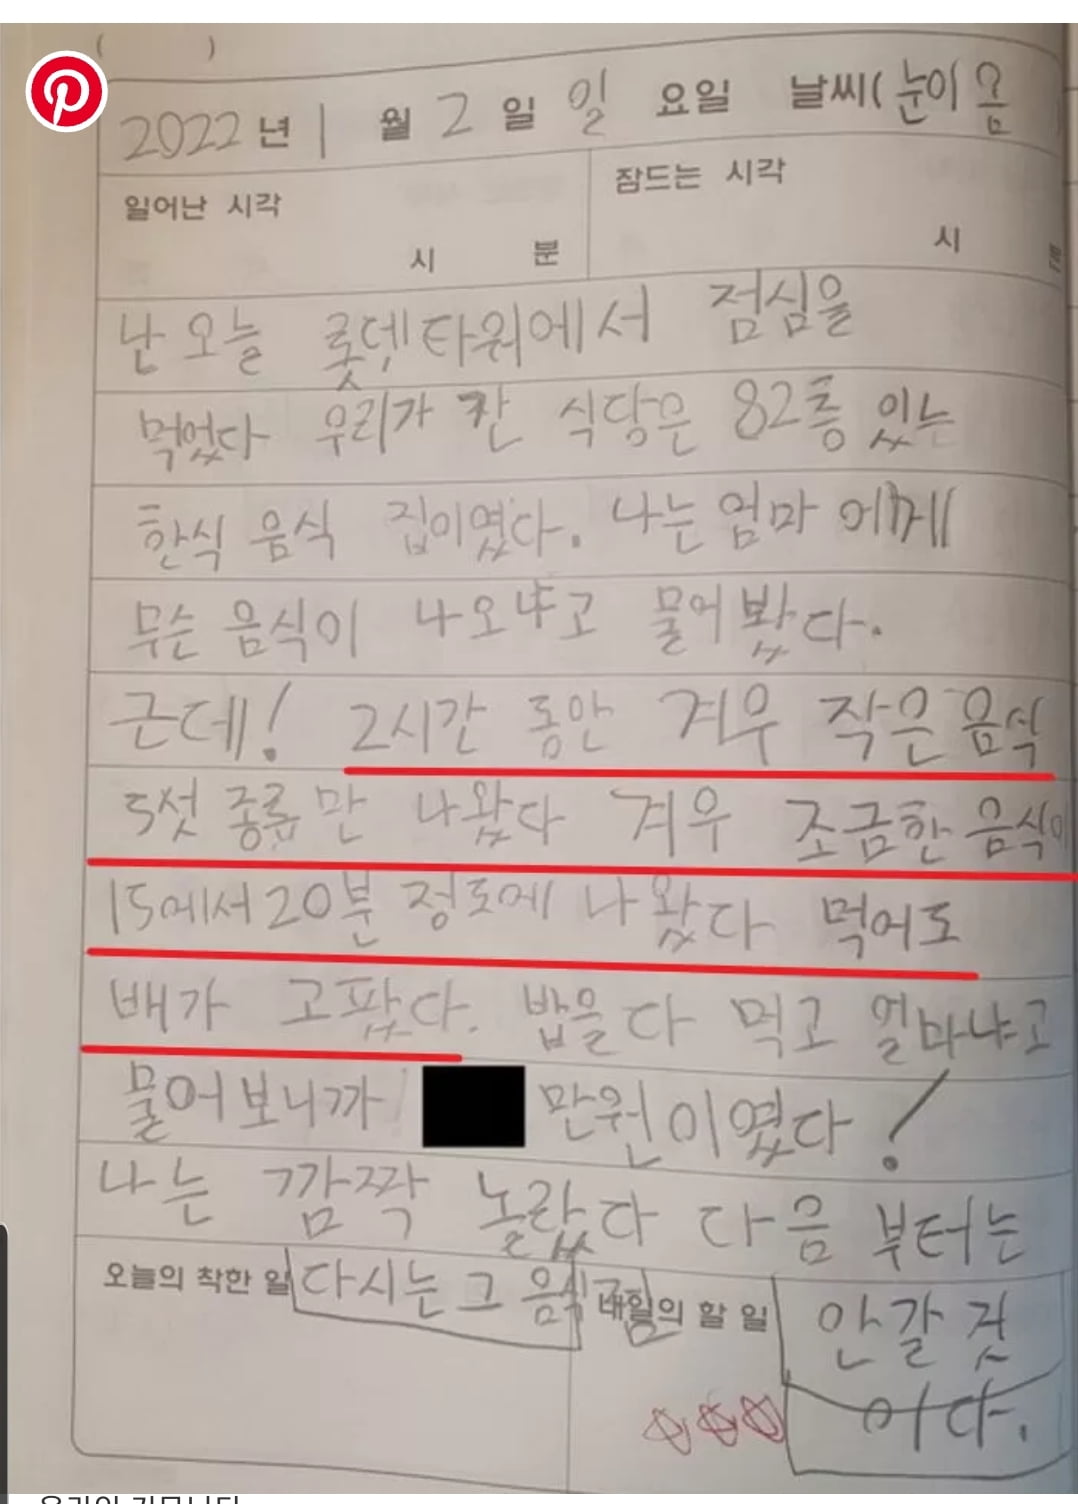 ( )
2022년 1월 2일 일요일 날씨(눈이 옴
일어난 시각 잠드는 시각
시 분 시
난 오늘 롯뎃타워에서 점심을
먹었다 우리가 간 식당은 82층 있는
한식 음식 집이였다. 나는 엄마 에게
무슨 음식이 나오냐고 물어봤다.
근데! 2시간 동안 겨우 작은 음식
5섯 종류만 나왔다 겨우 조금한 음식이
15에서 20분 정도에 나왔다 먹어도
배가 고팠다. 밥을 다 먹고 얼마냐고
물어보니까 만원이였다!
나는 깜짝 놀랐다 다음 부터는
오늘의 착한 일 다시는 그 음식점 내일의 할 일 안갈 것
이다.